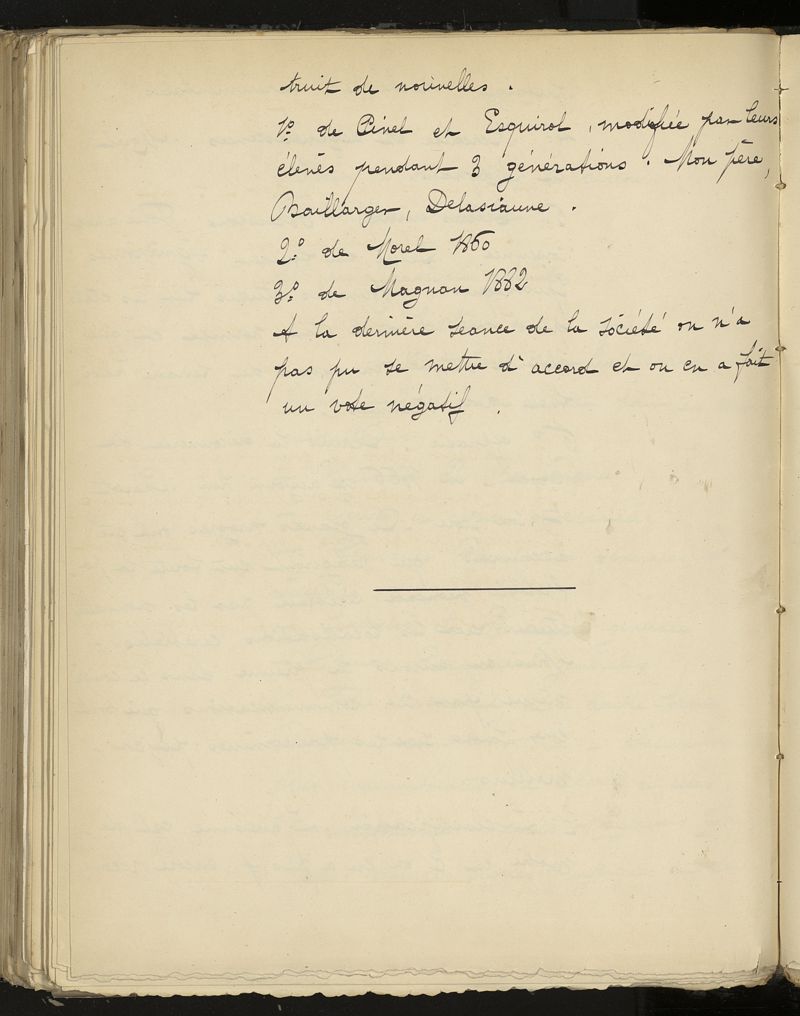 truit de nouvelles.
1º de Pinel et Esquirol, modifiée par leurs
élèves pendant 3 générations. Mon père,
Baillarger, Delasiauve.
2º de Morel 1860
3º de Magnan 1882
A la dernière séance de la société on n'a
pas pu se mettre d'accord et on en a fait
un vote négatif.